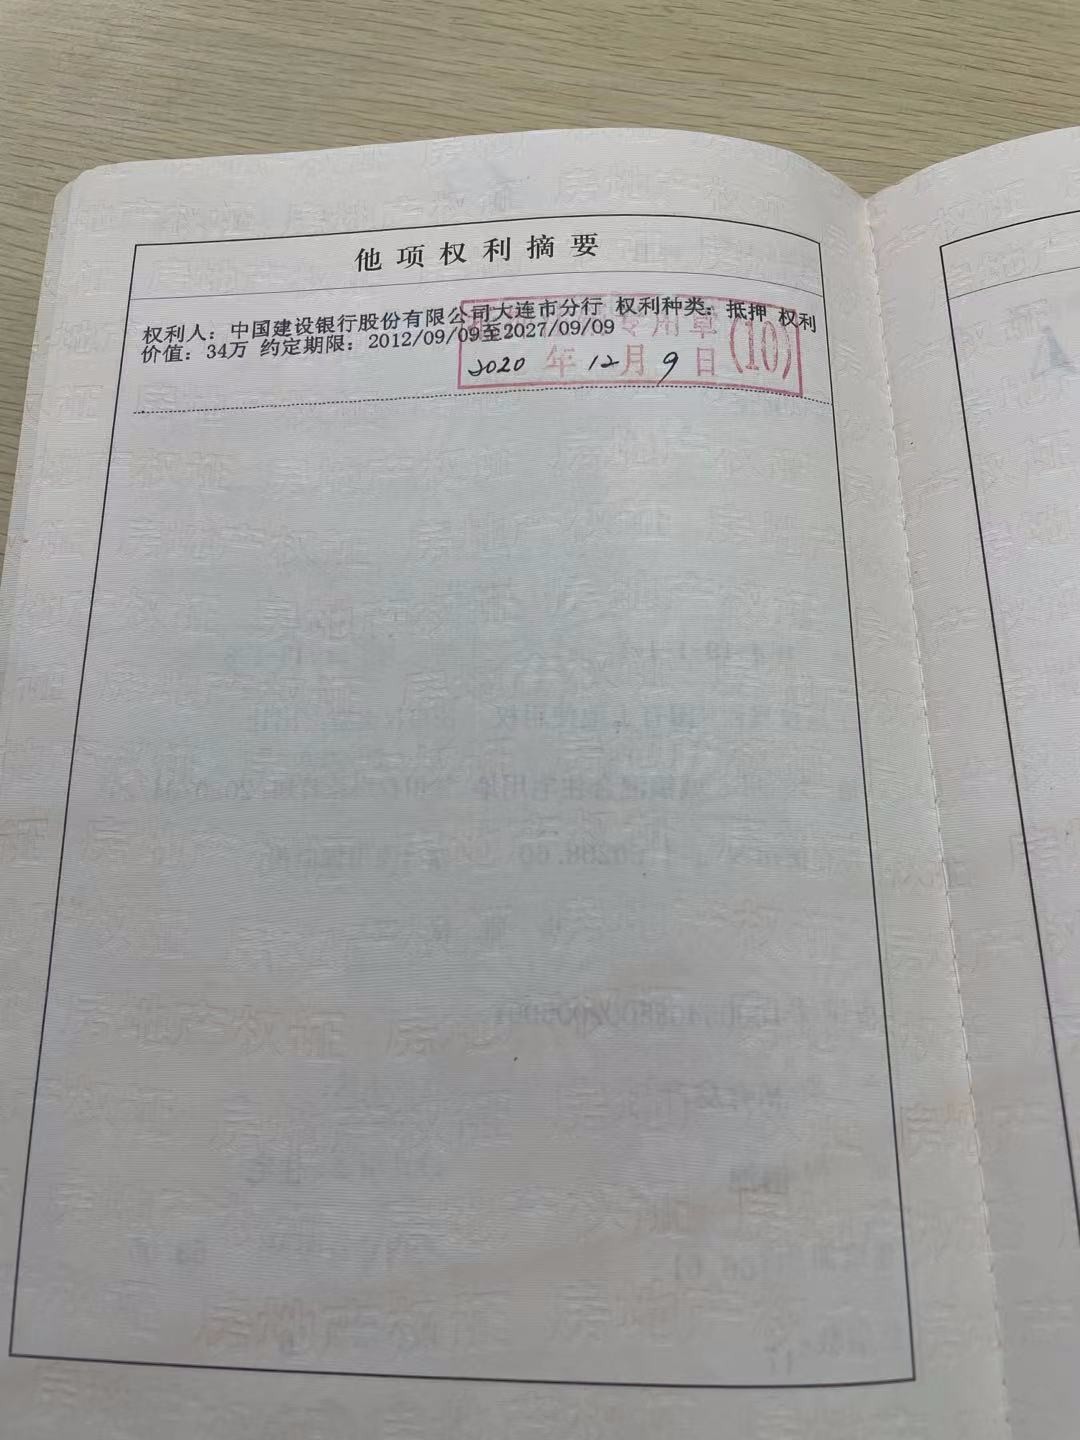 他项权利摘要
权利人：中国建设银行股份有限公司大连市分行 权利种类：抵押 权利
价值：34万 约定期限：2012/09/09至2027/09/09
专用章
(10)
2020年12月9日